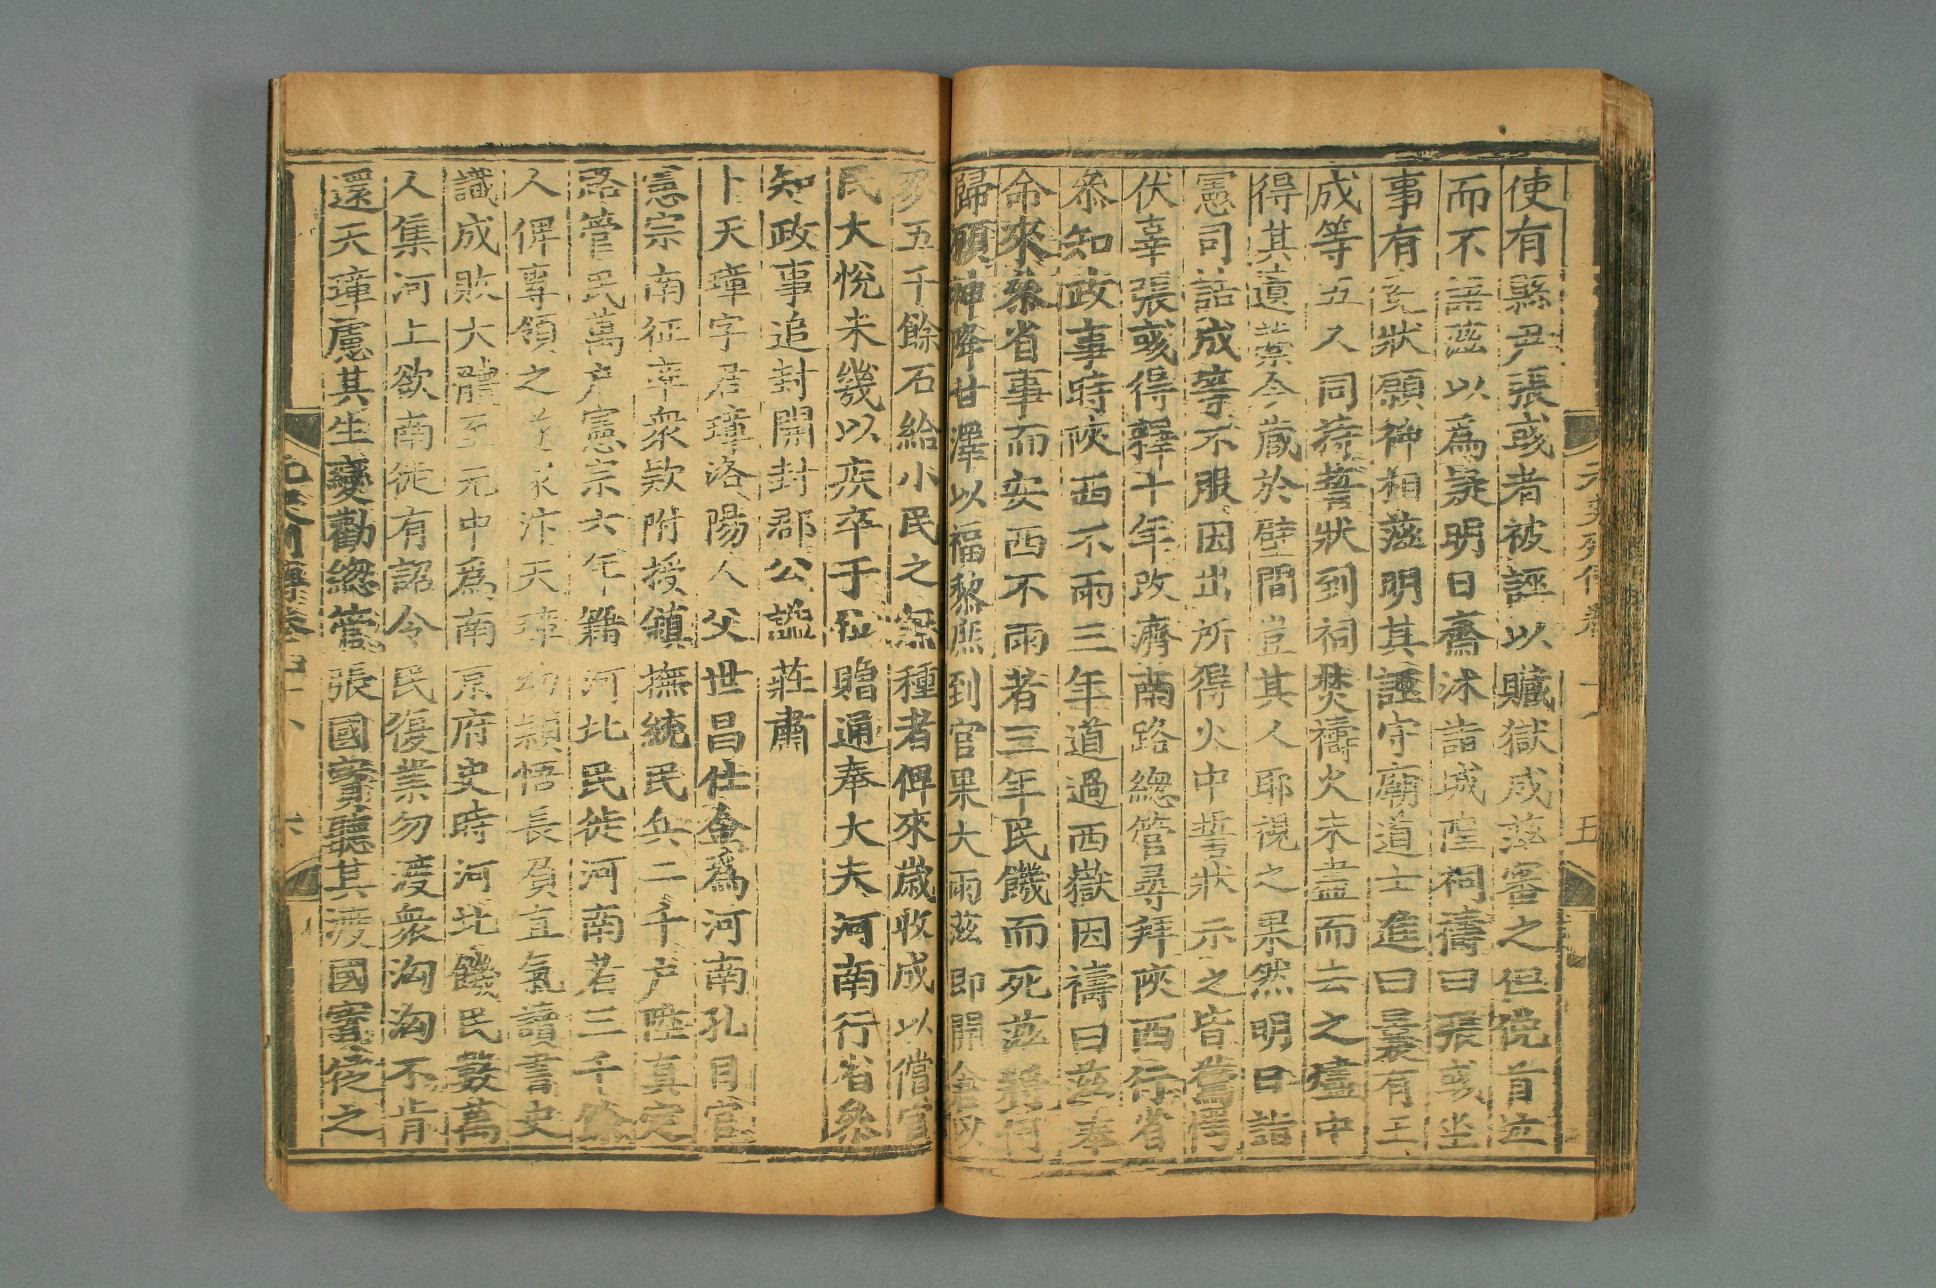 使有縣尹張彧者被誣以贓獄成茲審之但俛首泣
而不語茲以為疑明日齋沐詣城隍祠禱曰張彧坐
事有冤狀願神相茲明其誣守廟道士進曰曩有王
成等五人同持誓狀到祠焚禱火未盡而去之燼中
得其遺藁今藏於壁間豈其人耶視之果然明日詣
憲司詰成等不服因出所得火中誓狀示之皆驚愕
伏辜張彧得釋十年改濟南路總管尋拜陜西行省
叅知政事時陜西不雨三年道過西嶽因禱曰茲奉
命來叅省事而安西不雨者三年民饑而死茲將何
歸願神降甘澤以福黎庶到官果大雨茲即開倉以
麥五千餘石給小民之無種者俾來歲收成以償官
民大悅未幾以疾卒于位贈通奉大夫河南行省叅
知政事追封開封郡公謚莊肅
卜天璋字君璋洛陽人父世昌仕金為河南孔目官
憲宗南征率衆欵附授鎮撫統民兵二千戶陞真定
路管民萬戶憲宗六年籍河北民徙河南者三千餘
人俾專領之遂家汴天璋幼穎悟長負直氣讀書史
識成敗大體至元中為南京府史時河北饑民數萬
人集河上欲南徙有詔令民復業勿渡衆洶洶不肯
還天璋慮其生變勸總管張國寳聽其渡國寳從之